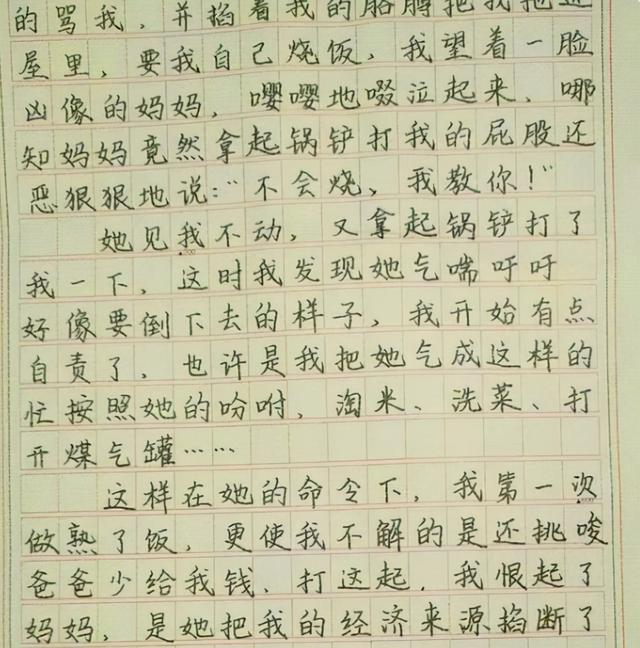 的骂我，并掐着我的胳膊把我拖进
屋里，要我自己烧饭，我望着一脸
凶像的妈妈，嘤嘤地啜泣起来、哪
知妈妈竟然拿起锅铲打我的屁股还
恶狠狠地说：“不会烧，我教你！”
她见我不动，又拿起锅铲打了
我一下，这时我发现她气喘吁吁
好像要倒下去的样子，我开始有点
自责了，也许是我把她气成这样的
忙按照她的吩咐，淘米、洗菜、打
开煤气罐……
这样在她的命令下，我第一次
做熟了饭，更使我不解的是还挑唆
爸爸少给我钱，打这起，我恨起了
妈妈，是她把我的经济来源掐断了